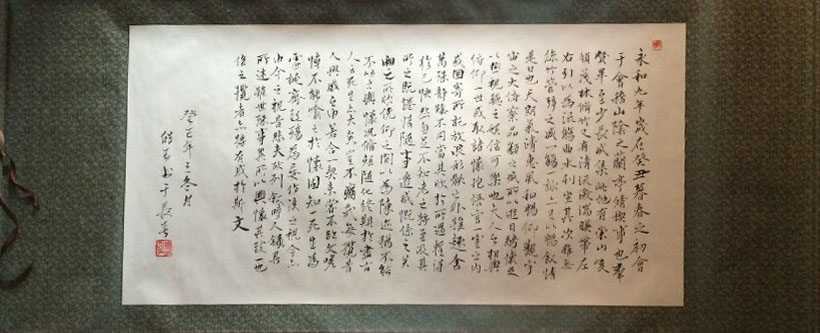 永和九年歲在癸丑暮春之初會
于會稽山陰之蘭亭脩禊事也羣
賢畢至少長咸集此地有崇山峻
領茂林脩竹又有清流激湍暎帶左
右引以為流觴曲水列坐其次雖無
絲竹管弦之盛一觴一詠亦足以暢敘幽情
是日也天朗氣清惠風和暢仰觀宇
宙之大俯察品類之盛所以遊目騁懷足
以極視聽之娛信可樂也夫人之相與
俯仰一世或取諸懷抱悟言一室之内
或因寄所託放浪形骸之外雖趣舍
萬殊靜躁不同當其欣於所遇暫得
於己怏然自足不知老之將至及其
所之既惓情隨事遷感慨係之矣
向之所欣俛仰之間以為陳迹猶不能
不以之興懷況脩短隨化終期於盡古
人云死生亦大矣豈不痛哉每攬昔
人興感之由若合一契未嘗不臨文嗟
悼不能喻之於懷固知一死生為
虛誕齊彭殤為妄作後之視今亦
由今之視昔悲夫故列敘時人錄其
所述雖世殊事異所以興懷其致一也
後之攬者亦將有感於斯文
癸巳年之冬月
書于長春